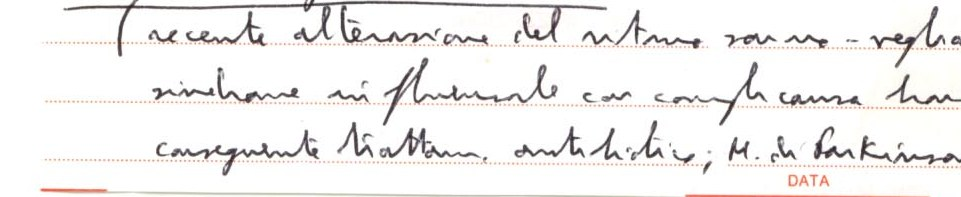 recente alterazione del ritmo sonno-veglia
sindrome influenzale con complicanza
conseguente trattam. antibiotico; M. di Parkinso
DATA